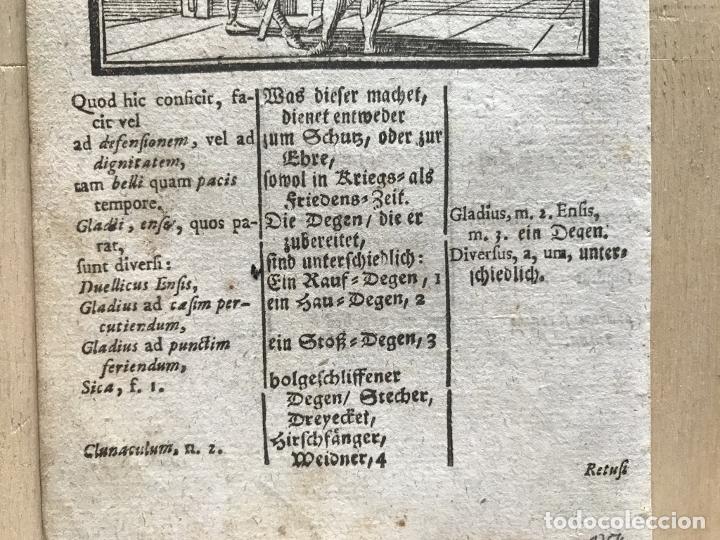 Quod hic conficit, fa-
cit vel
ad defensionem, vel ad
dignitatem,
tam belli quam pacis
tempore.
Gladii, enses, quos pa-
rat,
sunt diversi:
Duellicus Ensis,
Gladius ad cæsim per-
cutiendum,
Gladius ad punctim
feriendum,
Sica, f. 1.
Clunaculum, n. 2.
Was dieser machet,
dienet entweder
zum Schutz, oder zur
Ehre,
sowol in Kriegs- als
Friedens-Zeit.
Die Degen/ die er
zubereitet,
sind unterschiedlich:
Ein Rauf-Degen, 1
ein Hau-Degen, 2
ein Stoß-Degen, 3
holgeschliffener
Degen/ Stecher,
Dreyecket,
Hirschfänger,
Weidner, 4
Gladius, m. 2. Ensis,
m. 3. ein Degen.
Diversus, a, um, unter-
schiedlich.
Retusi
todocoleccion
todocoleccion.net